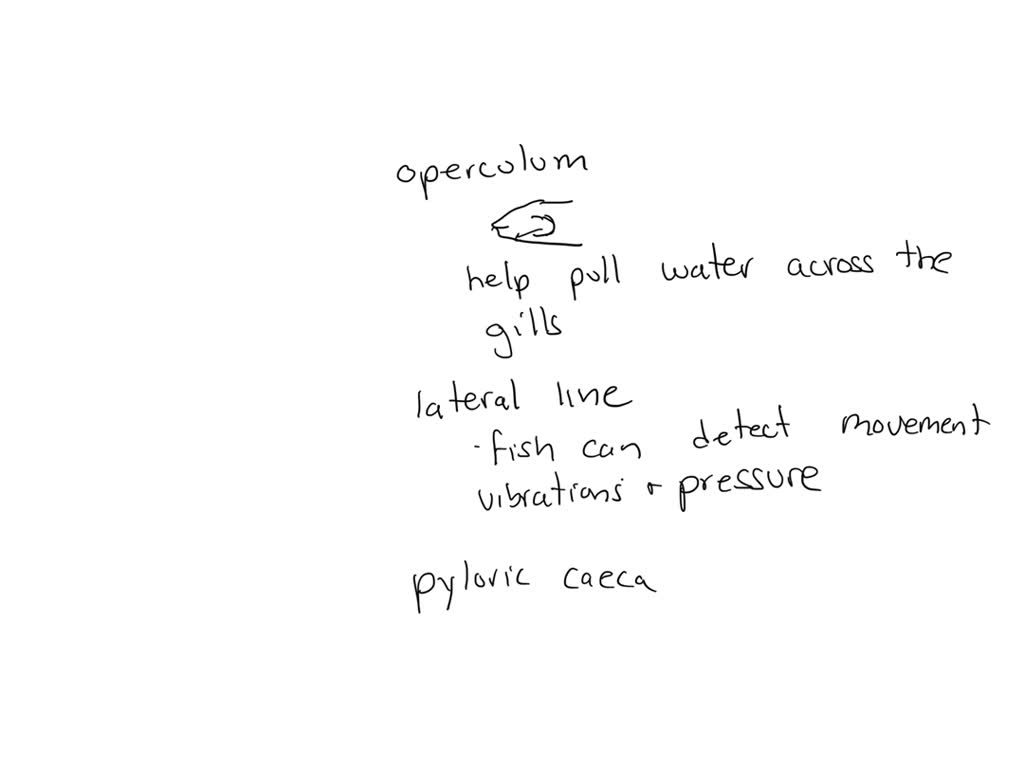 opercolum
help pull water across the
gills
lateral line
· fish can detect movement
vibrations + pressure
pyloric caeca